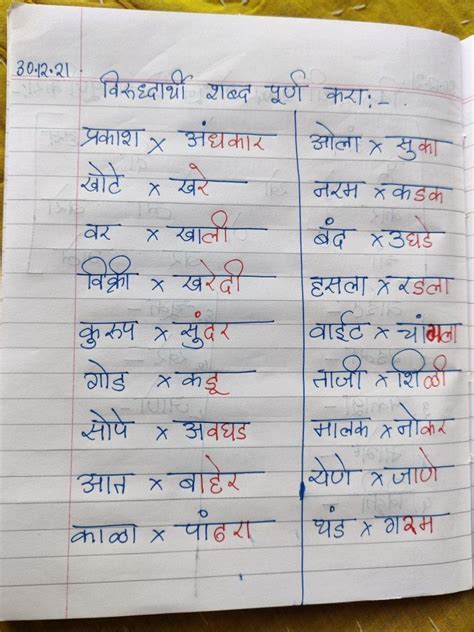 30.12.21
विरुध्दार्थी शब्द पूर्ण करा:-
प्रकाश × अंधकार
खोटे × खरे
वर × खाली
विक्री × खरेदी
कुरुप × सुंदर
गोड × कडू
सोपे × अवघड
आत × बाहेर
काळा × पांढरा
ओला × सुका
नरम × कडक
बंद × उघडे
हसला × रडला
वाईट × चांगला
ताजी × शिळी
मालक × नोकर
येणे × जाणे
थंड × गरम